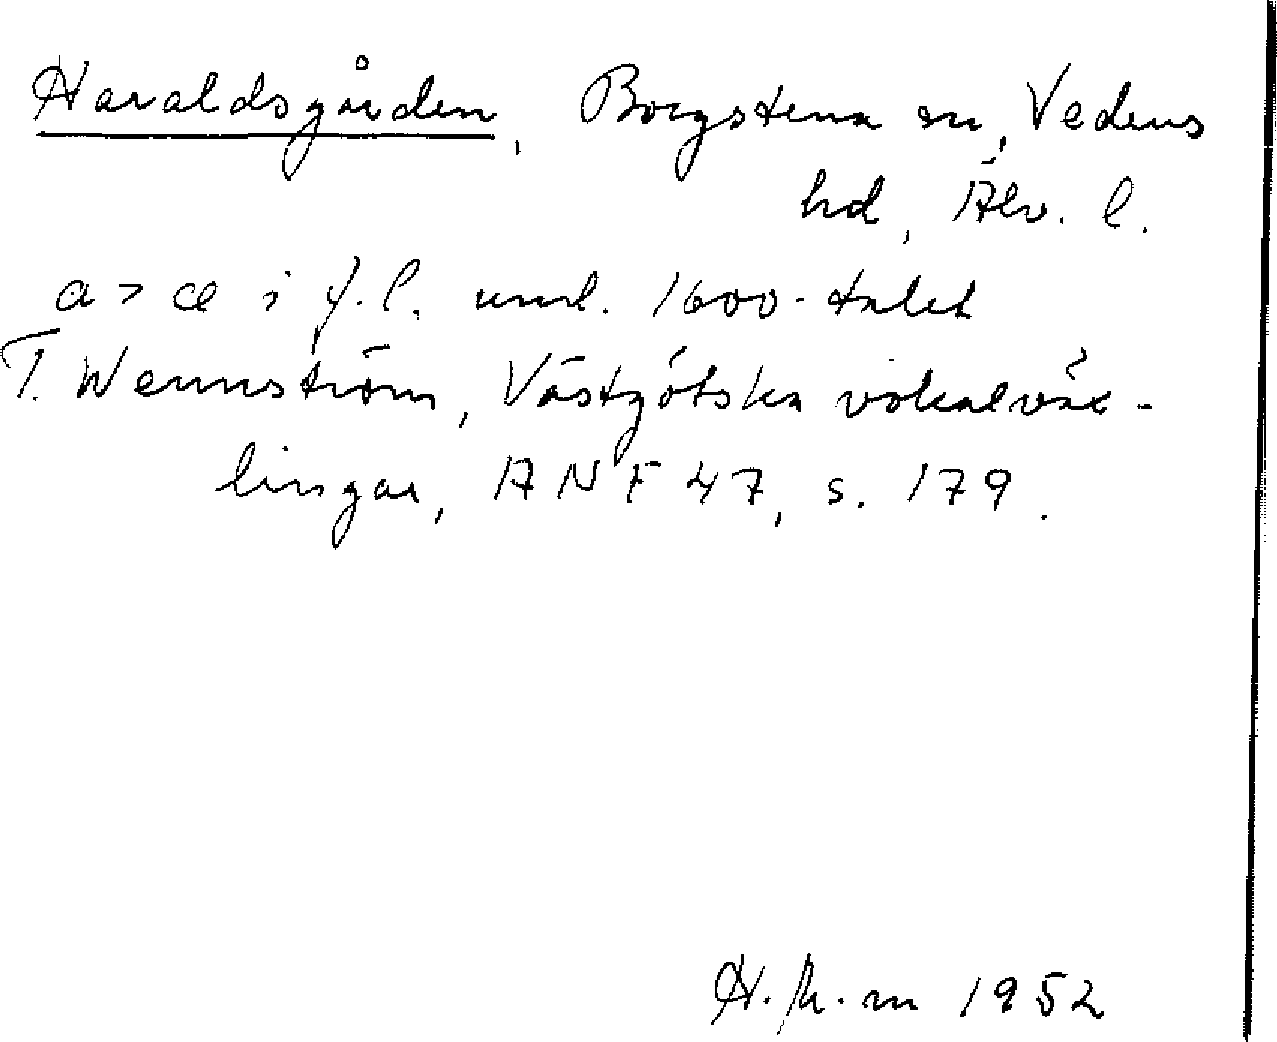 Haraldsgården, Borgstena sn, Vedens
hd, Älv. l.
a > æ i f.l. und. 1600-talet
T. Wennström, Västgötska vokalväx-
lingar, ANF 47, s. 179.
1952